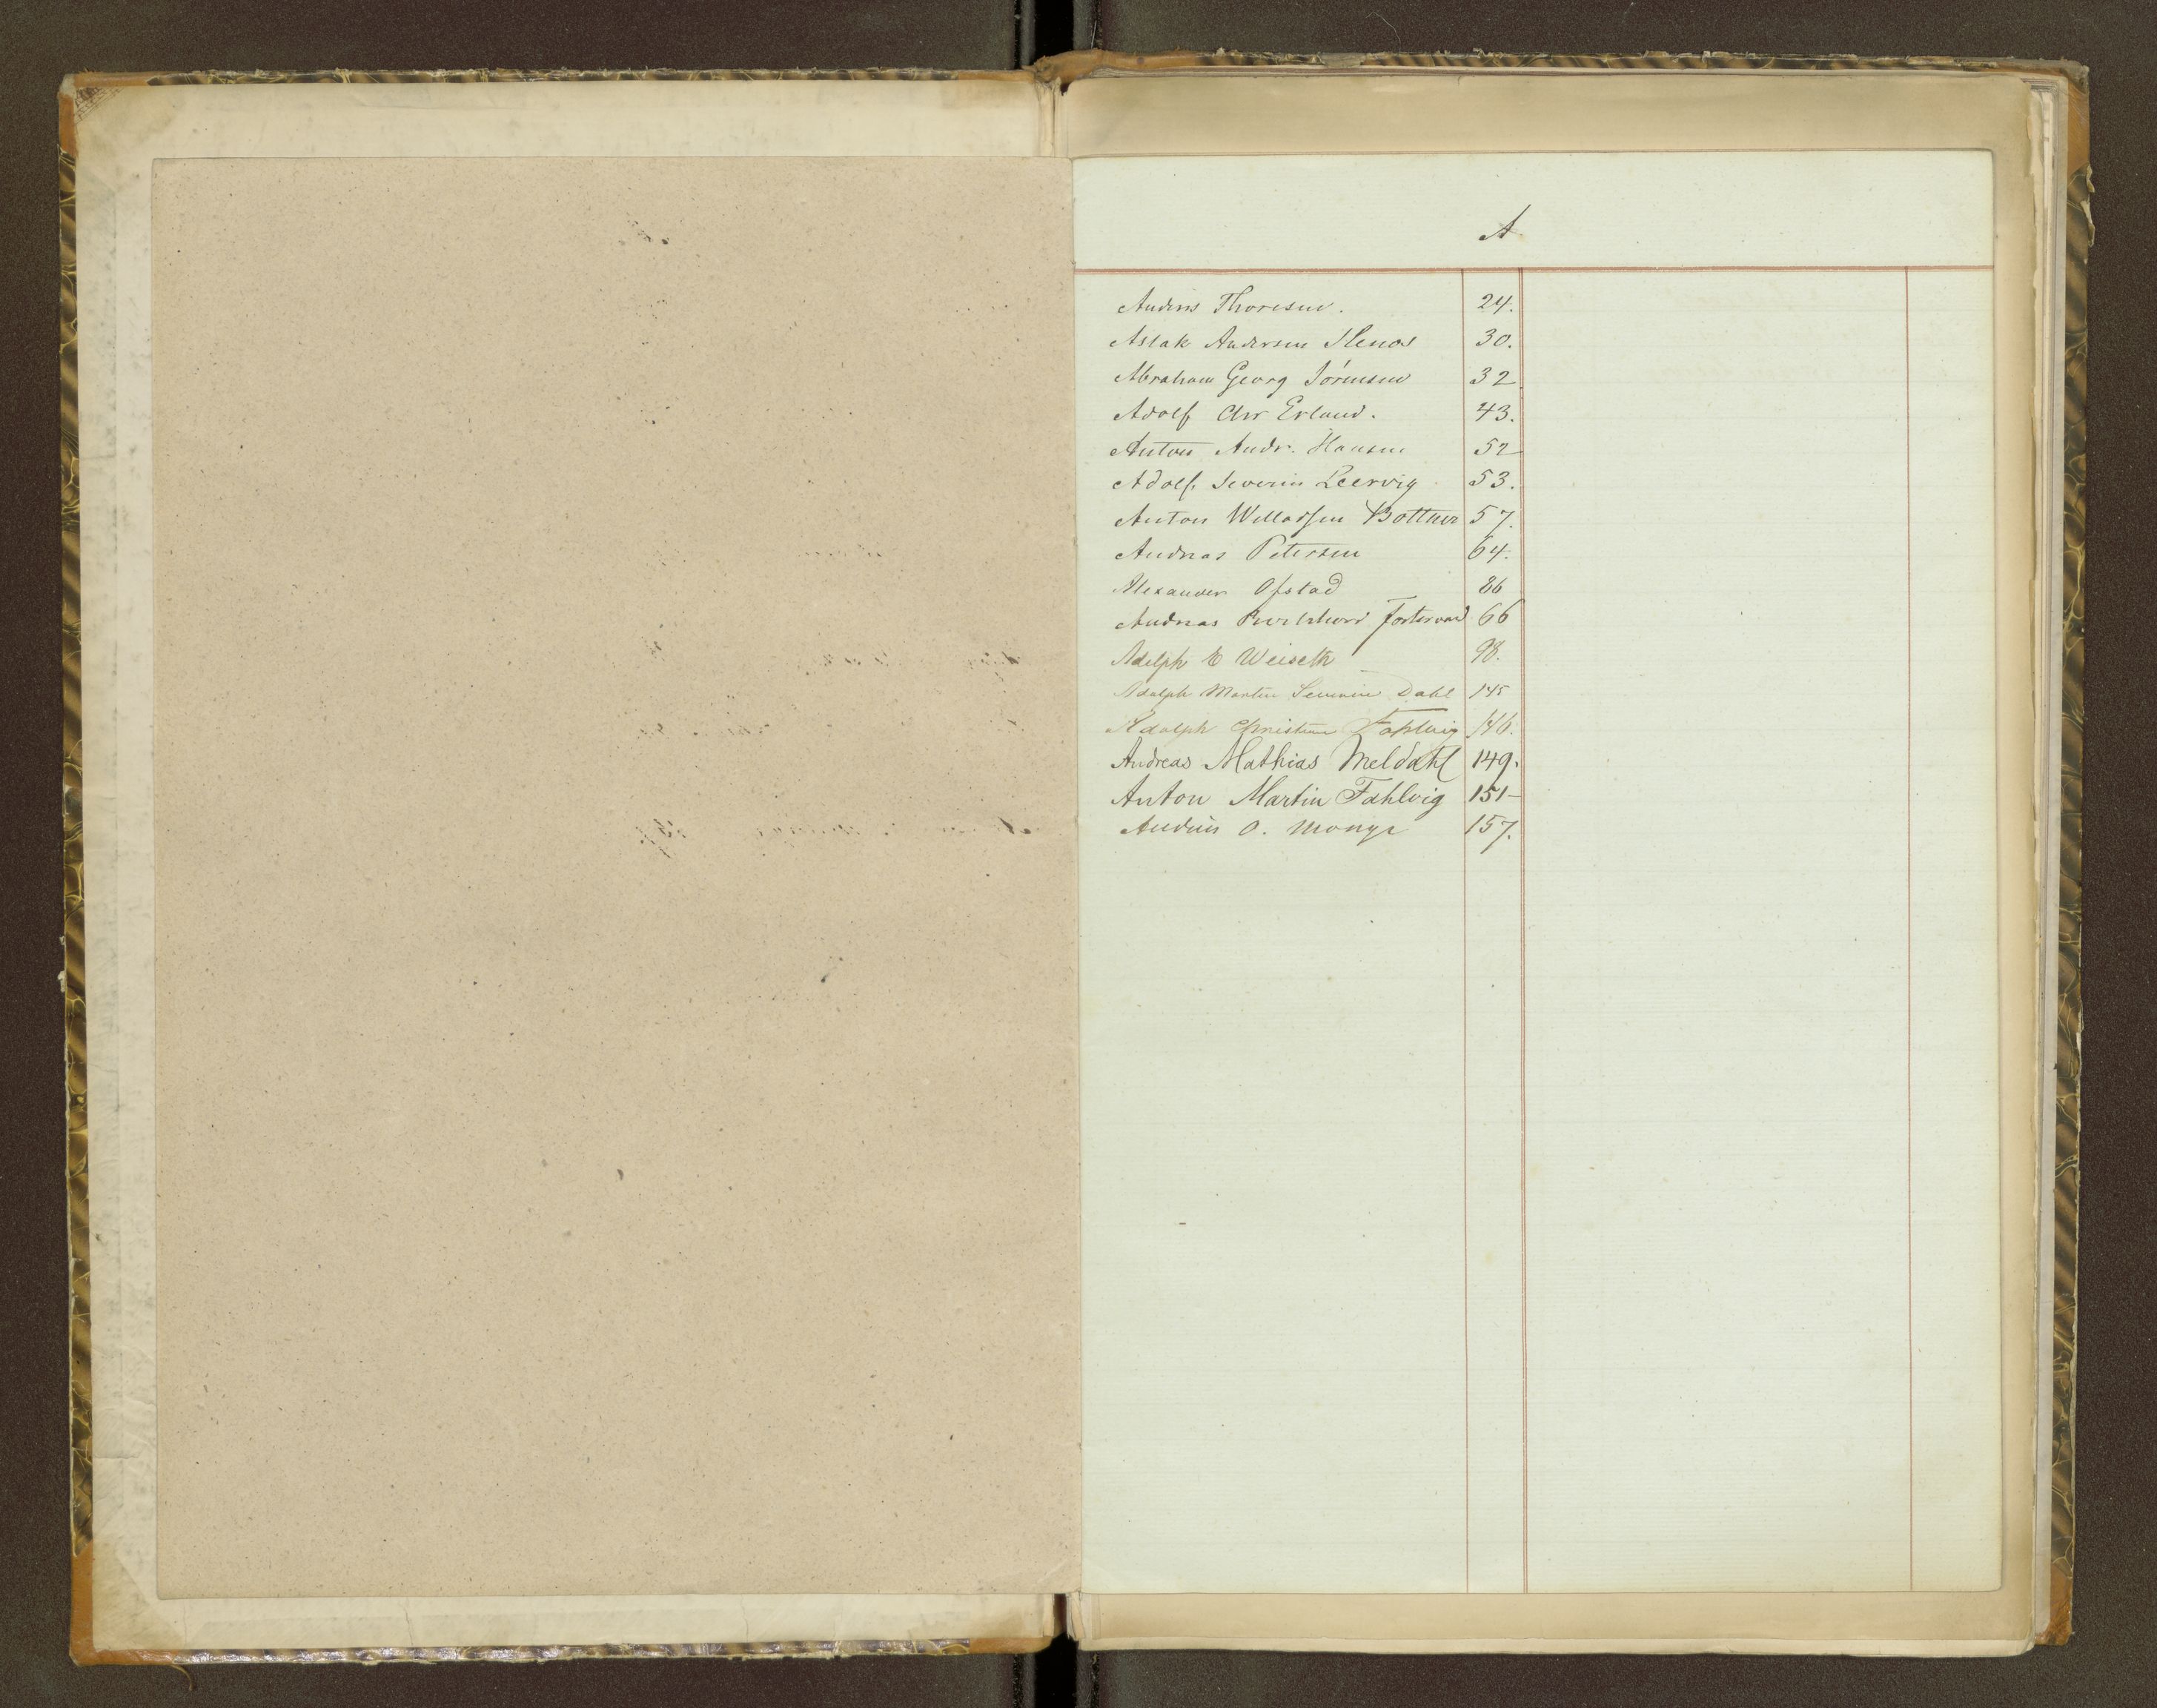 A
Anders Thoresen. 24.
Aslak Andersen Stenos 30.
Abraham Georg Sörensen 32
Adolf Chr Erland. 43.
Anton Andr. Hansen 52
Adolf Severin Leervig 53.
Anton Willadsen Bottner 57.
Andreas Petersen 64.
Alexander Ofstad 86
Andreas Fostervand 66
Adolph E Weiseth 98.
Adolph Martin Severin Dahl 145
Adolph Christian Fahlvig 146.
Andreas Mathias Meldahl 149.
Anton Martin Fahlvig 151-
O. Monge 157.